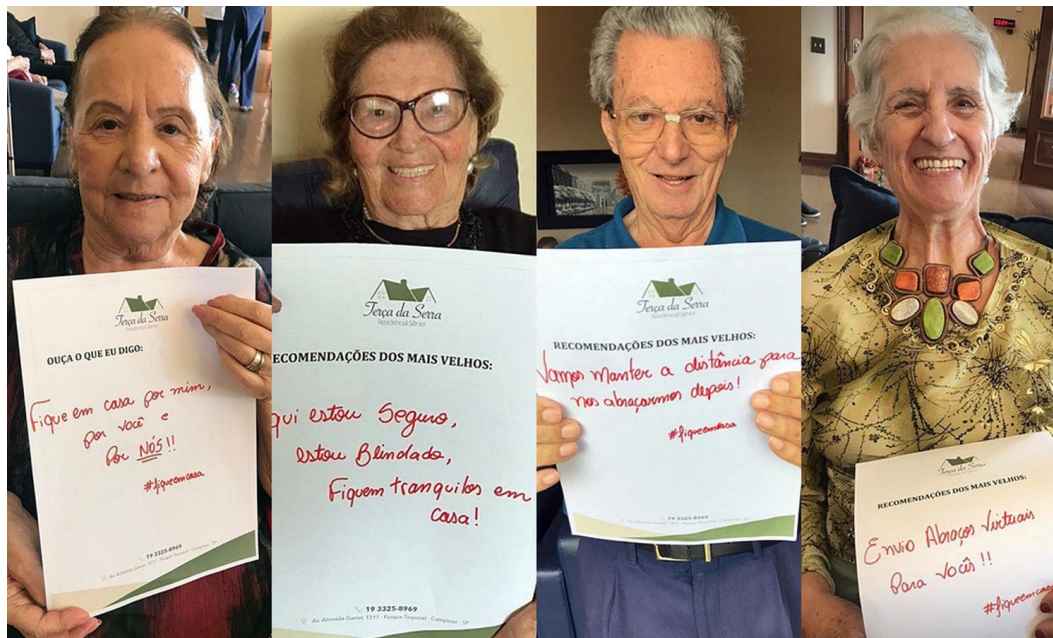 Terça da Serra
Residencial Sênior
OUÇA O QUE EU DIGO:
Fique em casa por mim,
por você e
Por NÓS!!
#fiqueemcasa
19 3325-8969
Av. Almeida Garret, 1317 - Parque Taquaral - Campinas - SP
Terça da Serra
Residencial Sênior
ECOMENDAÇÕES DOS MAIS VELHOS:
qui estou Seguro,
estou Blindado,
Fiquem tranquilos em
casa!
19 3325-8969
Av. Almeida Garret, 1317 - Parque Taquaral - Campinas - SP
Terça da Serra
Residencial Sênior
RECOMENDAÇÕES DOS MAIS VELHOS:
Vamos manter a distância para
nos abraçarmos depois!
#fiqueemcasa
19 3325-8969
Av. Almeida Garret, 1317 - Parque Taquaral - Campinas - SP
Terça da Serra
Residencial Sênior
RECOMENDAÇÕES DOS MAIS VELHOS:
Envio Abraços Virtuais
Para vocês!!
#fiqueemcasa